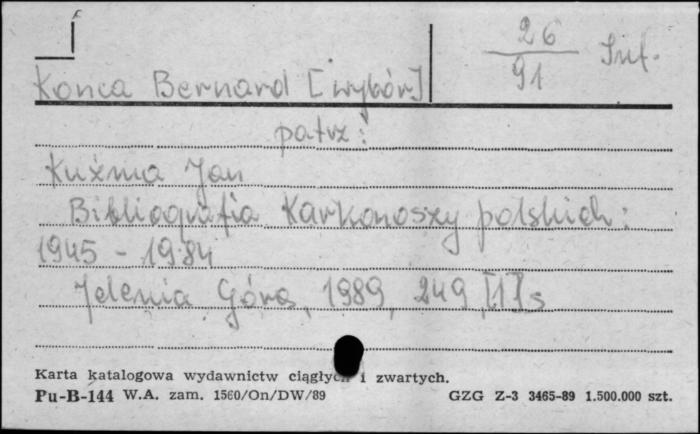 26
91 Inf.
Konca Bernard [wybór]
patrz:
Kuźmia Jan
Bibliografia Karkonoszy polskich:
1945 - 1984
Jelenia Góra, 1989, 249, [1] s
Karta katalogowa wydawnictw ciągłych i zwartych.
Pu-B-144 W.A. zam. 1560/On/DW/89 GZG Z-3 3465-89 1.500.000 szt.